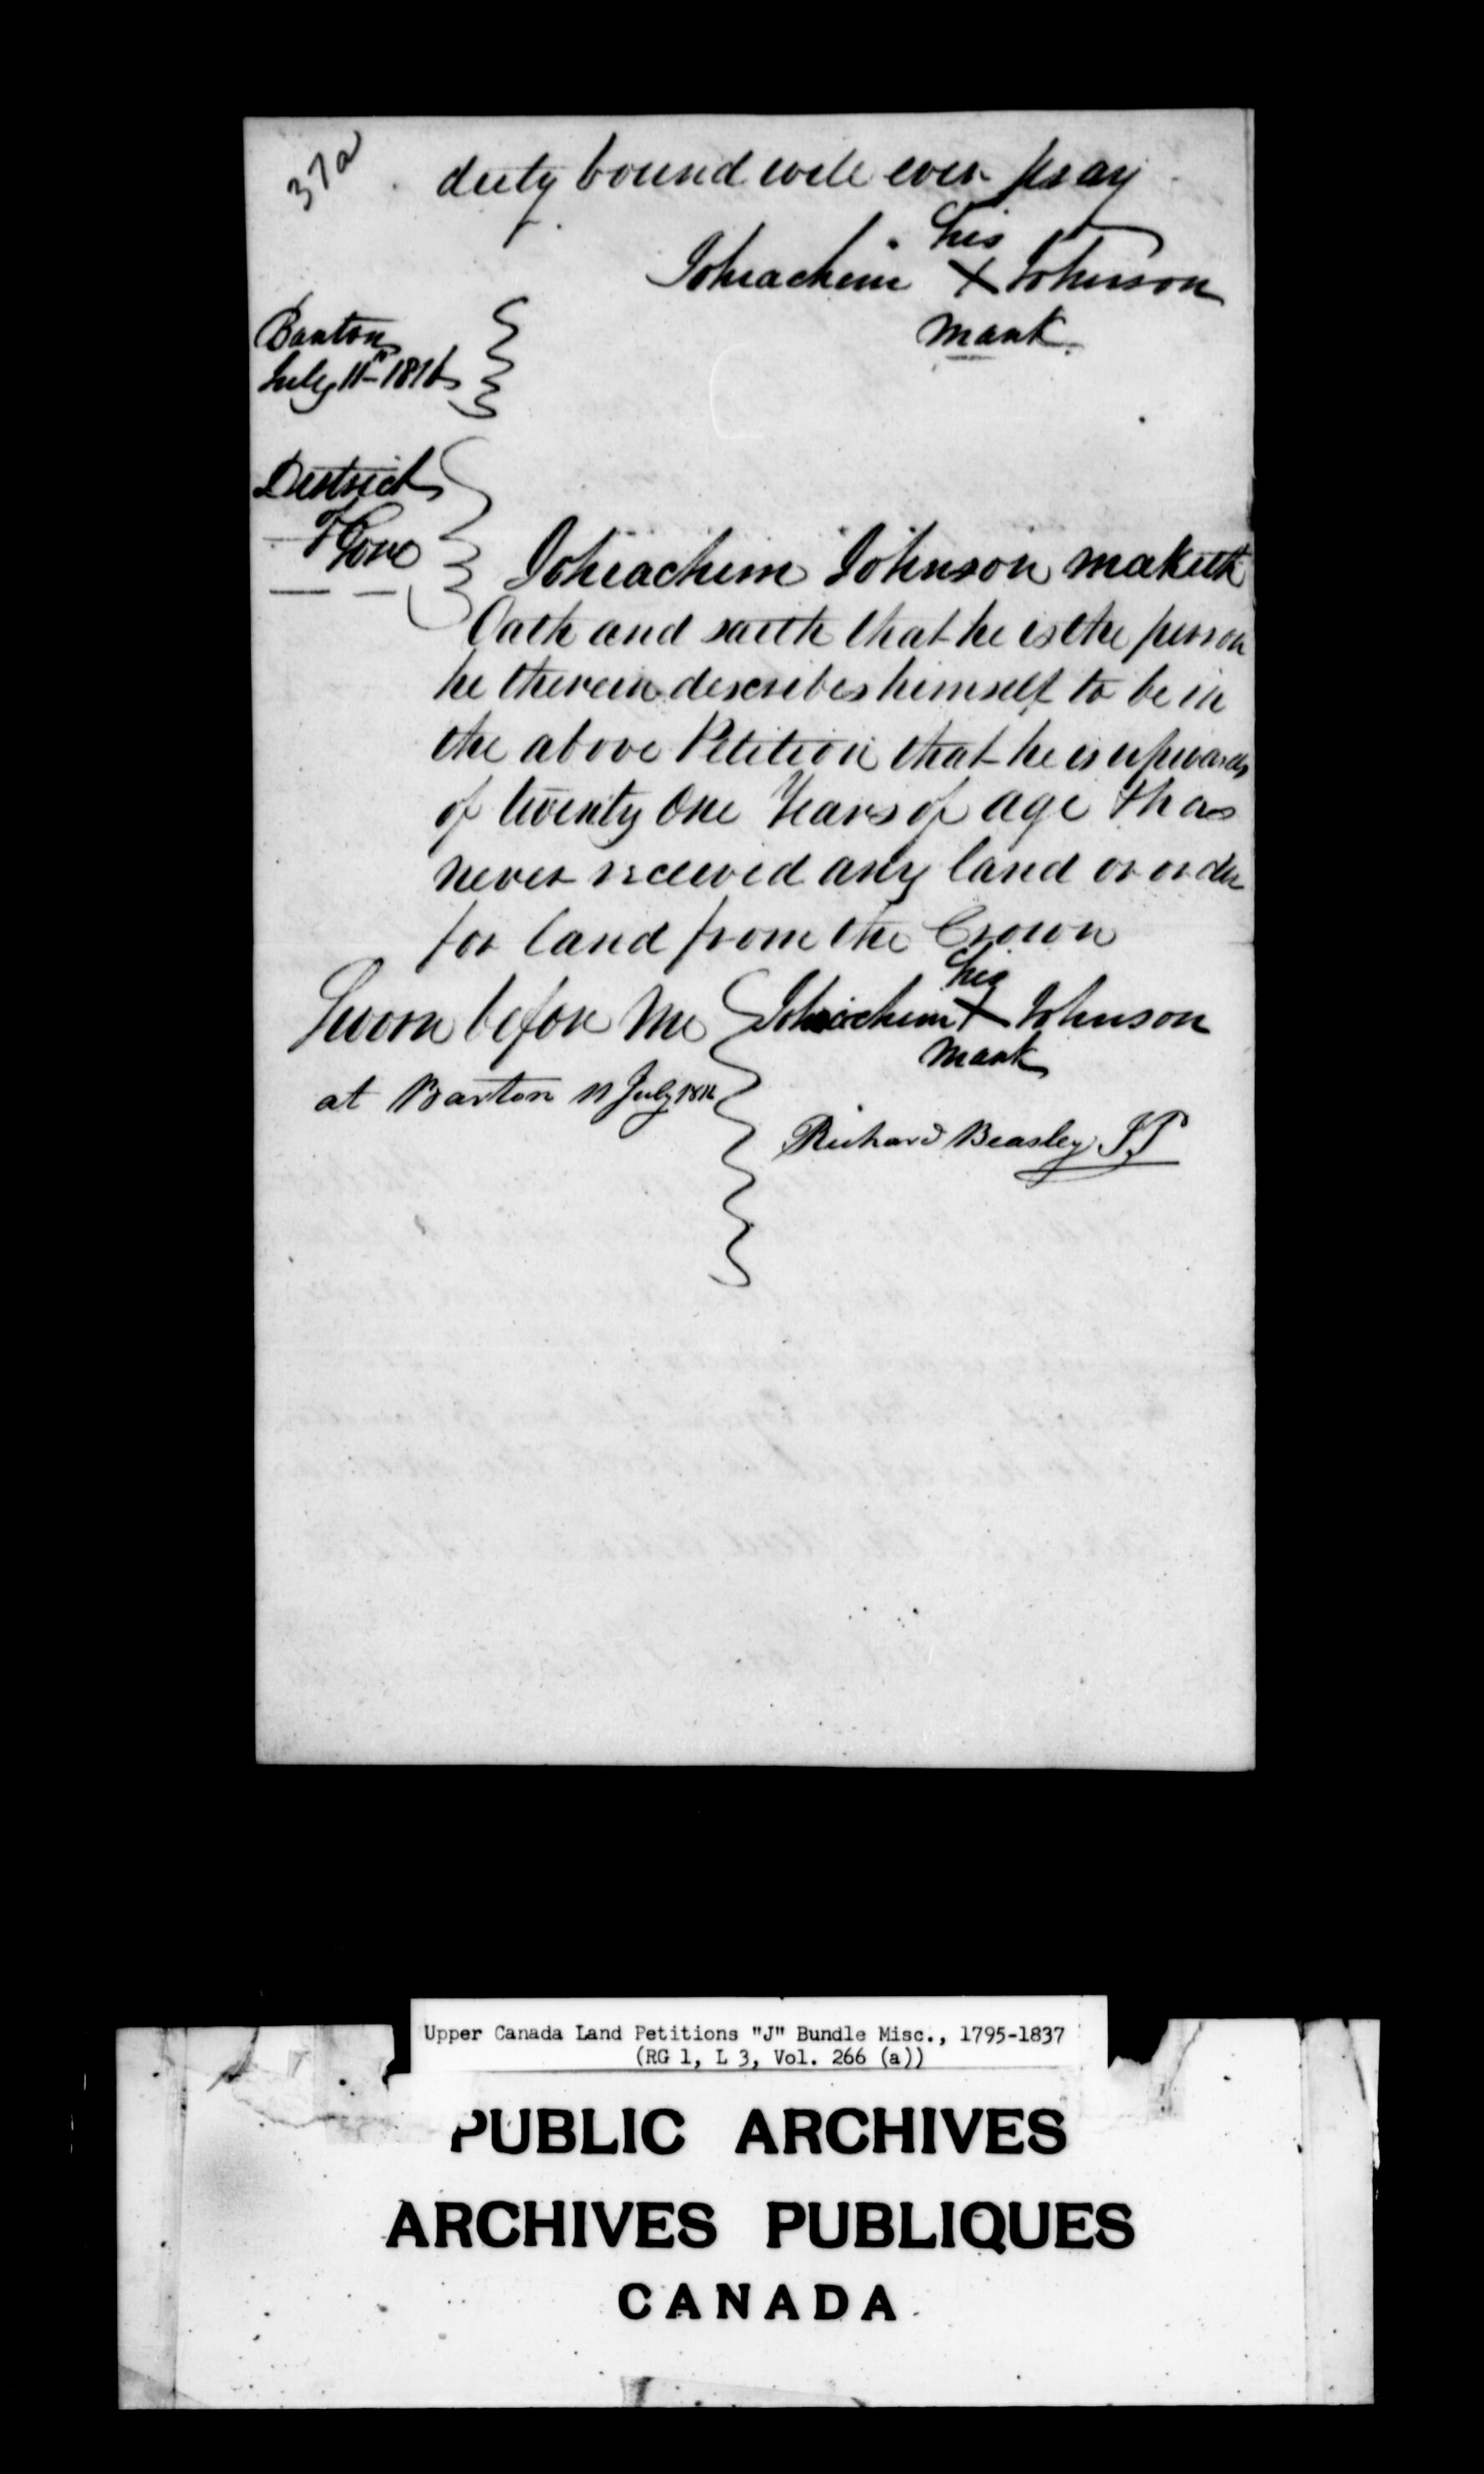 37a
duty bound will ever pray
his
Johiachim X Johnson
mark
Barton
July 11th 1816
District
of Gore
Johiachim Johnson maketh
Oath and saith that he is the person
he therein describes himself to be in
the above Petition that he is upwards
of twenty One Years of age & has
never received any land or order
for land from the Crown
his
Johiachim X Johnson
mark
Sworn before Me
at Barton 11 July 1816
Richard Beasley JP
Upper Canada Land Petitions "J" Bundle Misc., 1795-1837
(RG 1, L 3, Vol. 266 (a))
PUBLIC ARCHIVES
ARCHIVES PUBLIQUES
CANADA